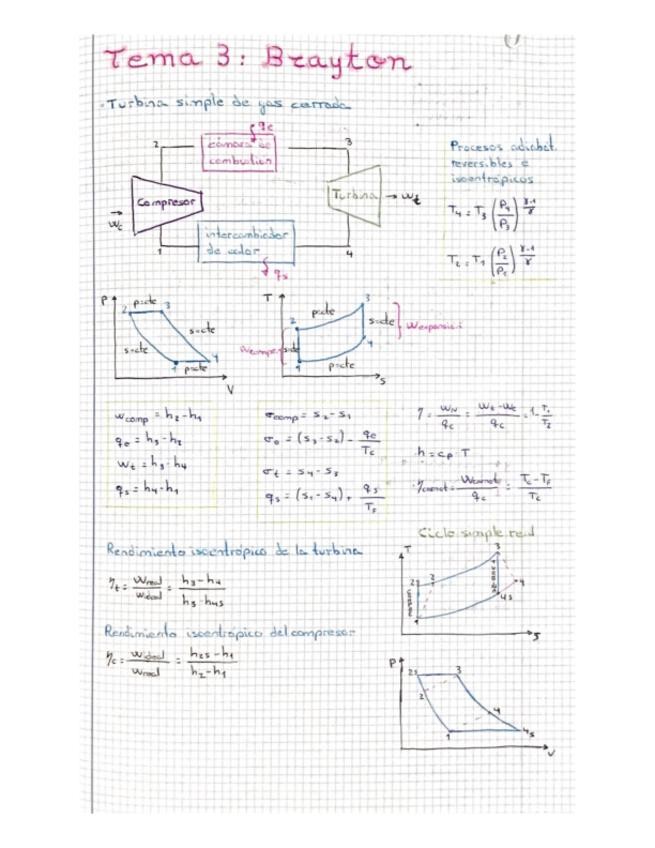 Tema 3: Brayton
· Turbina simple de gas cerrada
qe
2
cámara de
combustion
3
Compresor
Turbina
→ Wt
Wc
intercambiador
de calor
1
4
qs
Procesos adiabat.
reversibles e
isoentrópicos
T4 = T3 (P4/P3)^(γ-1/γ)
T2 = T1 (P2/P1)^(γ-1/γ)
P
p=cte
2
3
s=cte
s=cte
1
4
p=cte
V
T
p=cte
3
2
s=cte
s=cte
4
1
p=cte
s
Wcomp = h2-h1
qe = h3-h2
Wt = h3-h4
qs = h4-h1
σcomp = s2-s1
σe = (s3-s2) - qe/Tc
σt = s4-s3
qs = (s1-s4) + qs/TF
η = WN/qe = Wt-Wc/qe = 1- T1/T2
h = cp · T
ηcarnot = Wcarnot/qe = Tc-TF/Tc
Rendimiento isoentrópico de la turbina
ηt = Wreal/Wideal = h3-h4/h3-h4s
Rendimiento isoentrópico del compresor
ηc = Wideal/Wreal = h2s-h1/h2-h1
Ciclo simple real
T
3
2s
2
4
4s
1
s
P
2s
3
2
4
1
4s
V